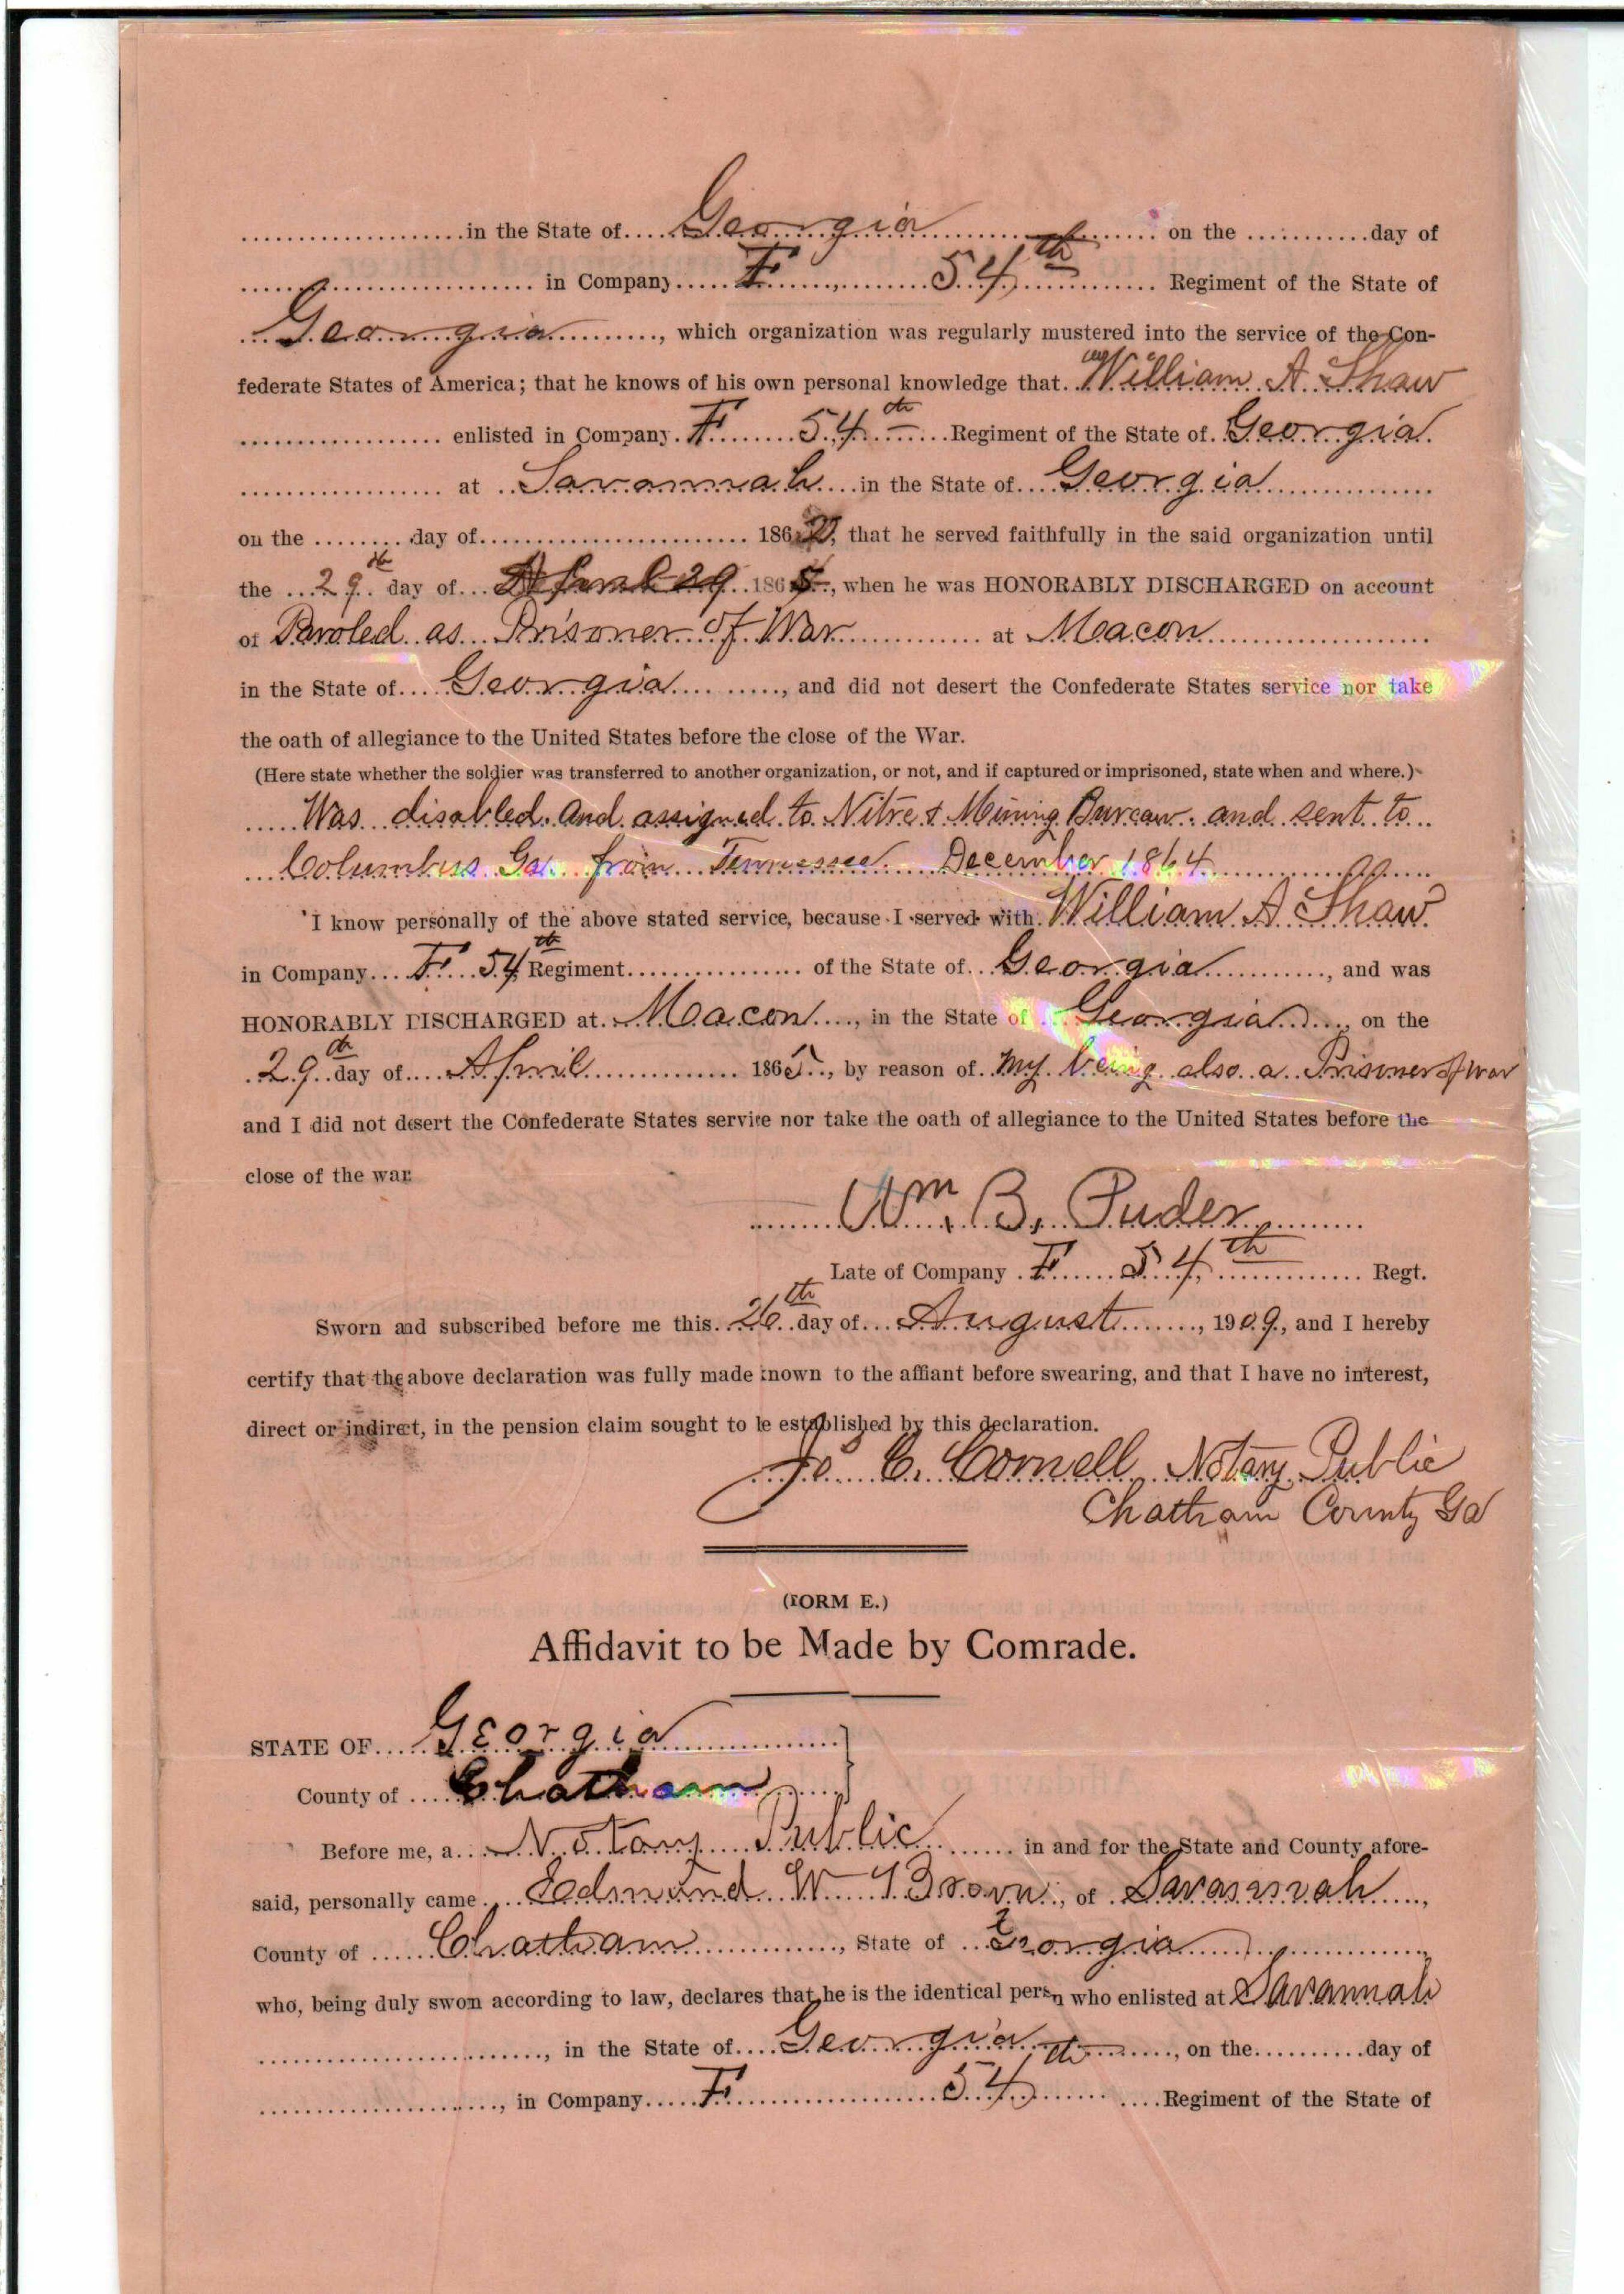 in the State of Georgia on the day of
in Company F 54th Regiment of the State of
Georgia, which organization was regularly mustered into the service of the Con-
federate States of America; that he knows of his own personal knowledge that William A. Shaw
enlisted in Company F 54th Regiment of the State of Georgia
at Savannah in the State of Georgia
on the day of 1862, that he served faithfully in the said organization until
the 29th day of April 29 1865, when he was HONORABLY DISCHARGED on account
of Paroled as Prisoner of War at Macon
in the State of Georgia, and did not desert the Confederate States service nor take
the oath of allegiance to the United States before the close of the War.
(Here state whether the soldier was transferred to another organization, or not, and if captured or imprisoned, state when and where.)
Was disabled and assigned to Nitre & Mining Bureau and sent to
Columbus Ga. from Tennessee December 1864
I know personally of the above stated service, because I served with William A. Shaw
in Company F 54th Regiment of the State of Georgia, and was
HONORABLY DISCHARGED at Macon, in the State of Georgia, on the
29th day of April 1865, by reason of my being also a Prisoner of War
and I did not desert the Confederate States service nor take the oath of allegiance to the United States before the
close of the war.
Wm. B. Puder
Late of Company F 54th Regt.
Sworn and subscribed before me this 26th day of August, 1909, and I hereby
certify that the above declaration was fully made known to the affiant before swearing, and that I have no interest,
direct or indirect, in the pension claim sought to be established by this declaration.
C. Cornell Notary Public
Chatham County Ga
(FORM E.)
Affidavit to be Made by Comrade.
STATE OF Georgia
County of Chatham
Before me, a Notary Public in and for the State and County afore-
said, personally came Edmund W Brown, of Savannah,
County of Chatham, State of Georgia
who, being duly sworn according to law, declares that he is the identical person who enlisted at Savannah
, in the State of Georgia, on the day of
, in Company F 54th Regiment of the State of